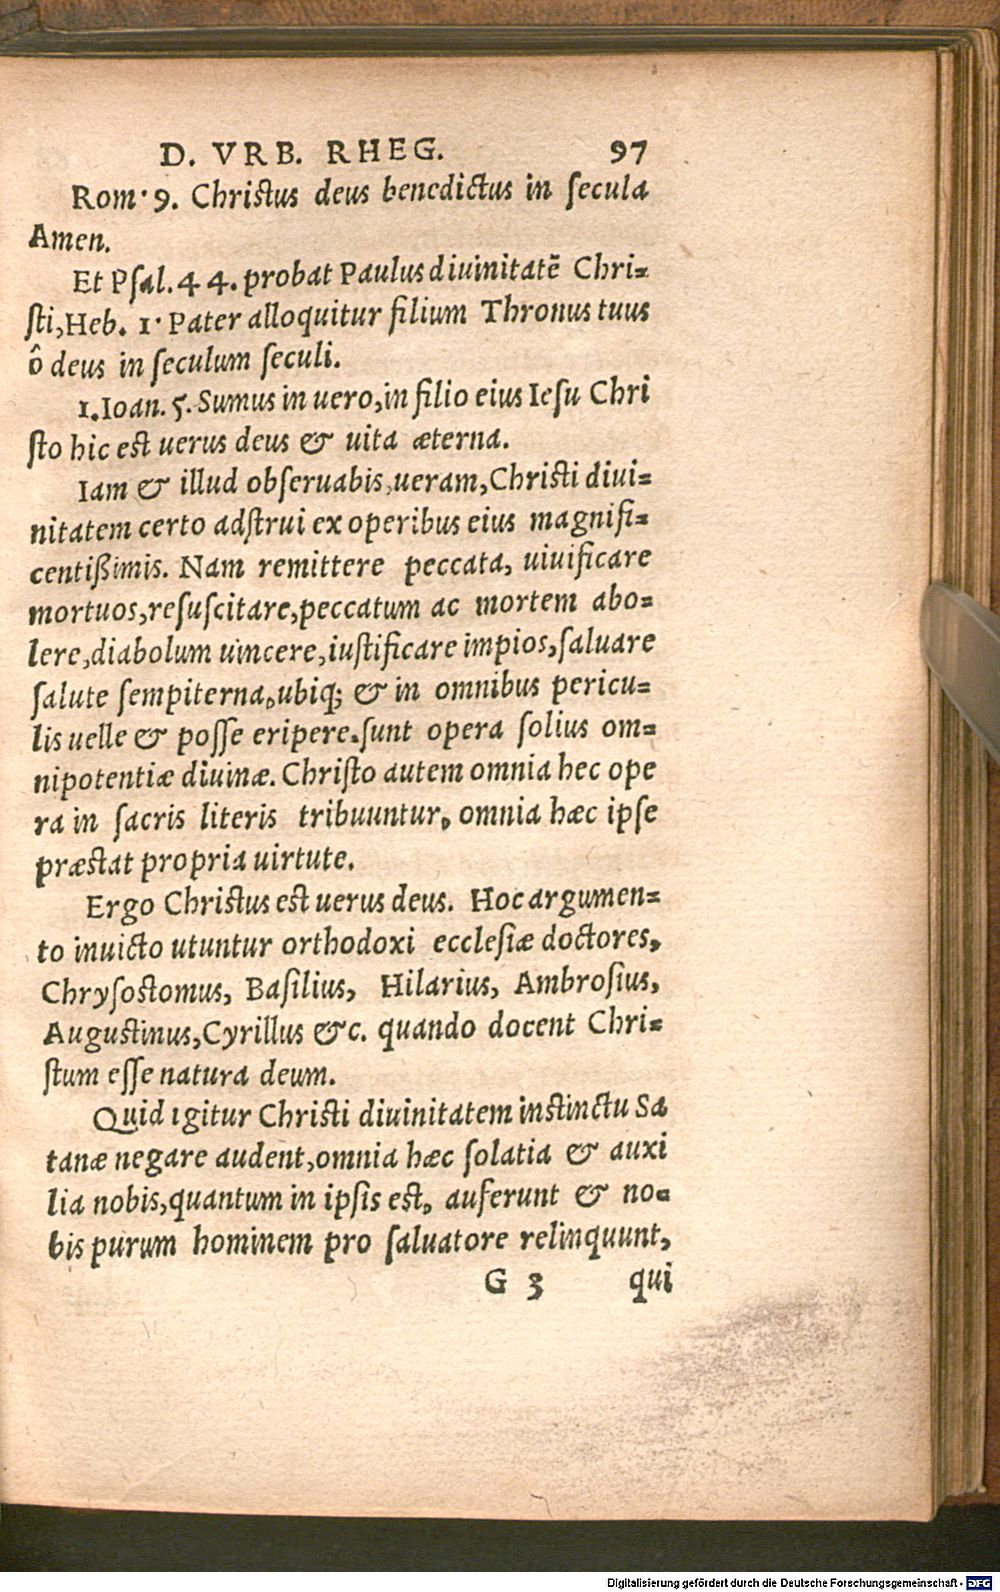 D. VRB. RHEG. 97
Rom· 9. Chriſtus deus benedictus in ſecula
Amen.
Et Pſal. 44. probat Paulus diuinitatē Chri-
ſti, Heb. 1· Pater alloquitur filium Thronus tuus
ô deus in ſeculum ſeculi.
1. Ioan. 5. Sumus in uero, in filio eius Ieſu Chri
ſto hic eſt uerus deus & uita æterna.
Iam & illud obſeruabis, ueram, Chriſti diui-
nitatem certo adſtrui ex operibus eius magnifi-
centiſsimis. Nam remittere peccata, uiuificare
mortuos, reſuſcitare, peccatum ac mortem abo-
lere, diabolum uincere, iuſtificare impios, ſaluare
ſalute ſempiterna, ubiq; & in omnibus pericu-
lis uelle & poſſe eripere. ſunt opera ſolius om-
nipotentiæ diuinæ. Chriſto autem omnia hec ope
ra in ſacris literis tribuuntur, omnia hæc ipſe
præſtat propria uirtute.
Ergo Chriſtus eſt uerus deus. Hoc argumen-
to inuicto utuntur orthodoxi eccleſiæ doctores,
Chryſoſtomus, Baſilius, Hilarius, Ambroſius,
Auguſtinus, Cyrillus &c. quando docent Chri-
ſtum eſſe natura deum.
Quid igitur Chriſti diuinitatem inſtinctu Sa
tanæ negare audent, omnia hæc ſolatia & auxi
lia nobis, quantum in ipſis eſt, auferunt & no-
bis purum hominem pro ſaluatore relinquunt,
G 3 qui
Digitalisierung gefördert durch die Deutsche Forschungsgemeinschaft - DFG